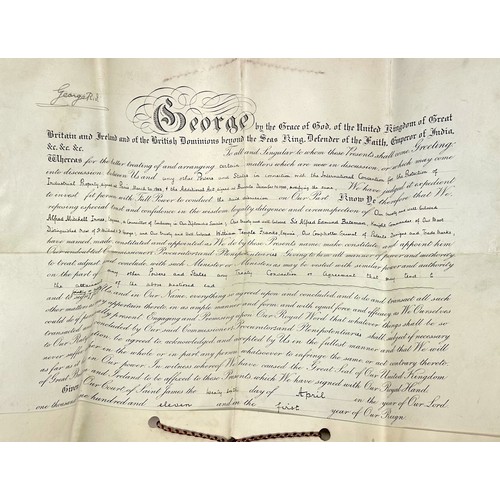 George R.I.
George by the Grace of God, of the United Kingdom of Great
Britain and Ireland and of the British Dominions beyond the Seas King, Defender of the Faith, Emperor of India,
&c. &c. &c. To all and Singular to whom these Presents shall come, Greeting:
Whereas for the better treating of and arranging certain matters which are now in discussion, or which may come
into discussion between Us and any other Powers and States in connection with the International Convention for the Protection of
Industrial Property signed at Paris March 20 1883, & the Additional Act signed at Brussels December 14 1900, modifying the same, We have judged it expedient
to invest fit persons with Full Power to conduct the said discussion on Our Part Know Ye therefore that We
reposing especial trust and confidence in the wisdom loyalty diligence and circumspection of Our trusty and well beloved
Alfred Mitchell Innes, Esquire, a Counsellor of Embassy in Our Diplomatic Service; Our trusty and well beloved Sir Alfred Edmund Bateman, Knight Commander of Our Most
Distinguished Order of St Michael & St George, and Our trusty and well beloved William Temple Franks, Esquire, Our Comptroller General of Patents Designs and Trade Marks,
have named, made constituted and appointed as We do by these Presents name, make constitute and appoint them
Our undoubted Commissioners Procurators and Plenipotentiaries Giving to them all manner of power and authority
to treat adjust and conclude with such Minister or Ministers as may be vested with similar power and authority
on the part of any other Powers and States any Treaty Convention or Agreement that may tend to
the attainment of the above mentioned end
and to sign for Us and in Our Name everything so agreed upon and concluded, and to do and transact all such
other matters as may appertain thereto in as ample manner and form, and with equal force and efficacy as We Ourselves
could do if personally present Engaging and Promising upon Our Royal Word that whatever things shall be so
transacted and concluded by Our said Commissioners Procurators and Plenipotentiaries shall subject if necessary
to Our Ratification, be agreed to, acknowledged and accepted by Us in the fullest manner and that We will
never suffer either in the whole or in part any person whatsoever to infringe the same, or act contrary thereto,
as far as it lies in Our power. In witness whereof We have caused the Great Seal of Our United Kingdom
of Great Britain and Ireland to be affixed to these Presents which We have signed with Our Royal Hand.
Given at Our Court of Saint James the twenty sixth day of April in the year of Our Lord
one thousand nine hundred and eleven and in the first year of Our Reign.